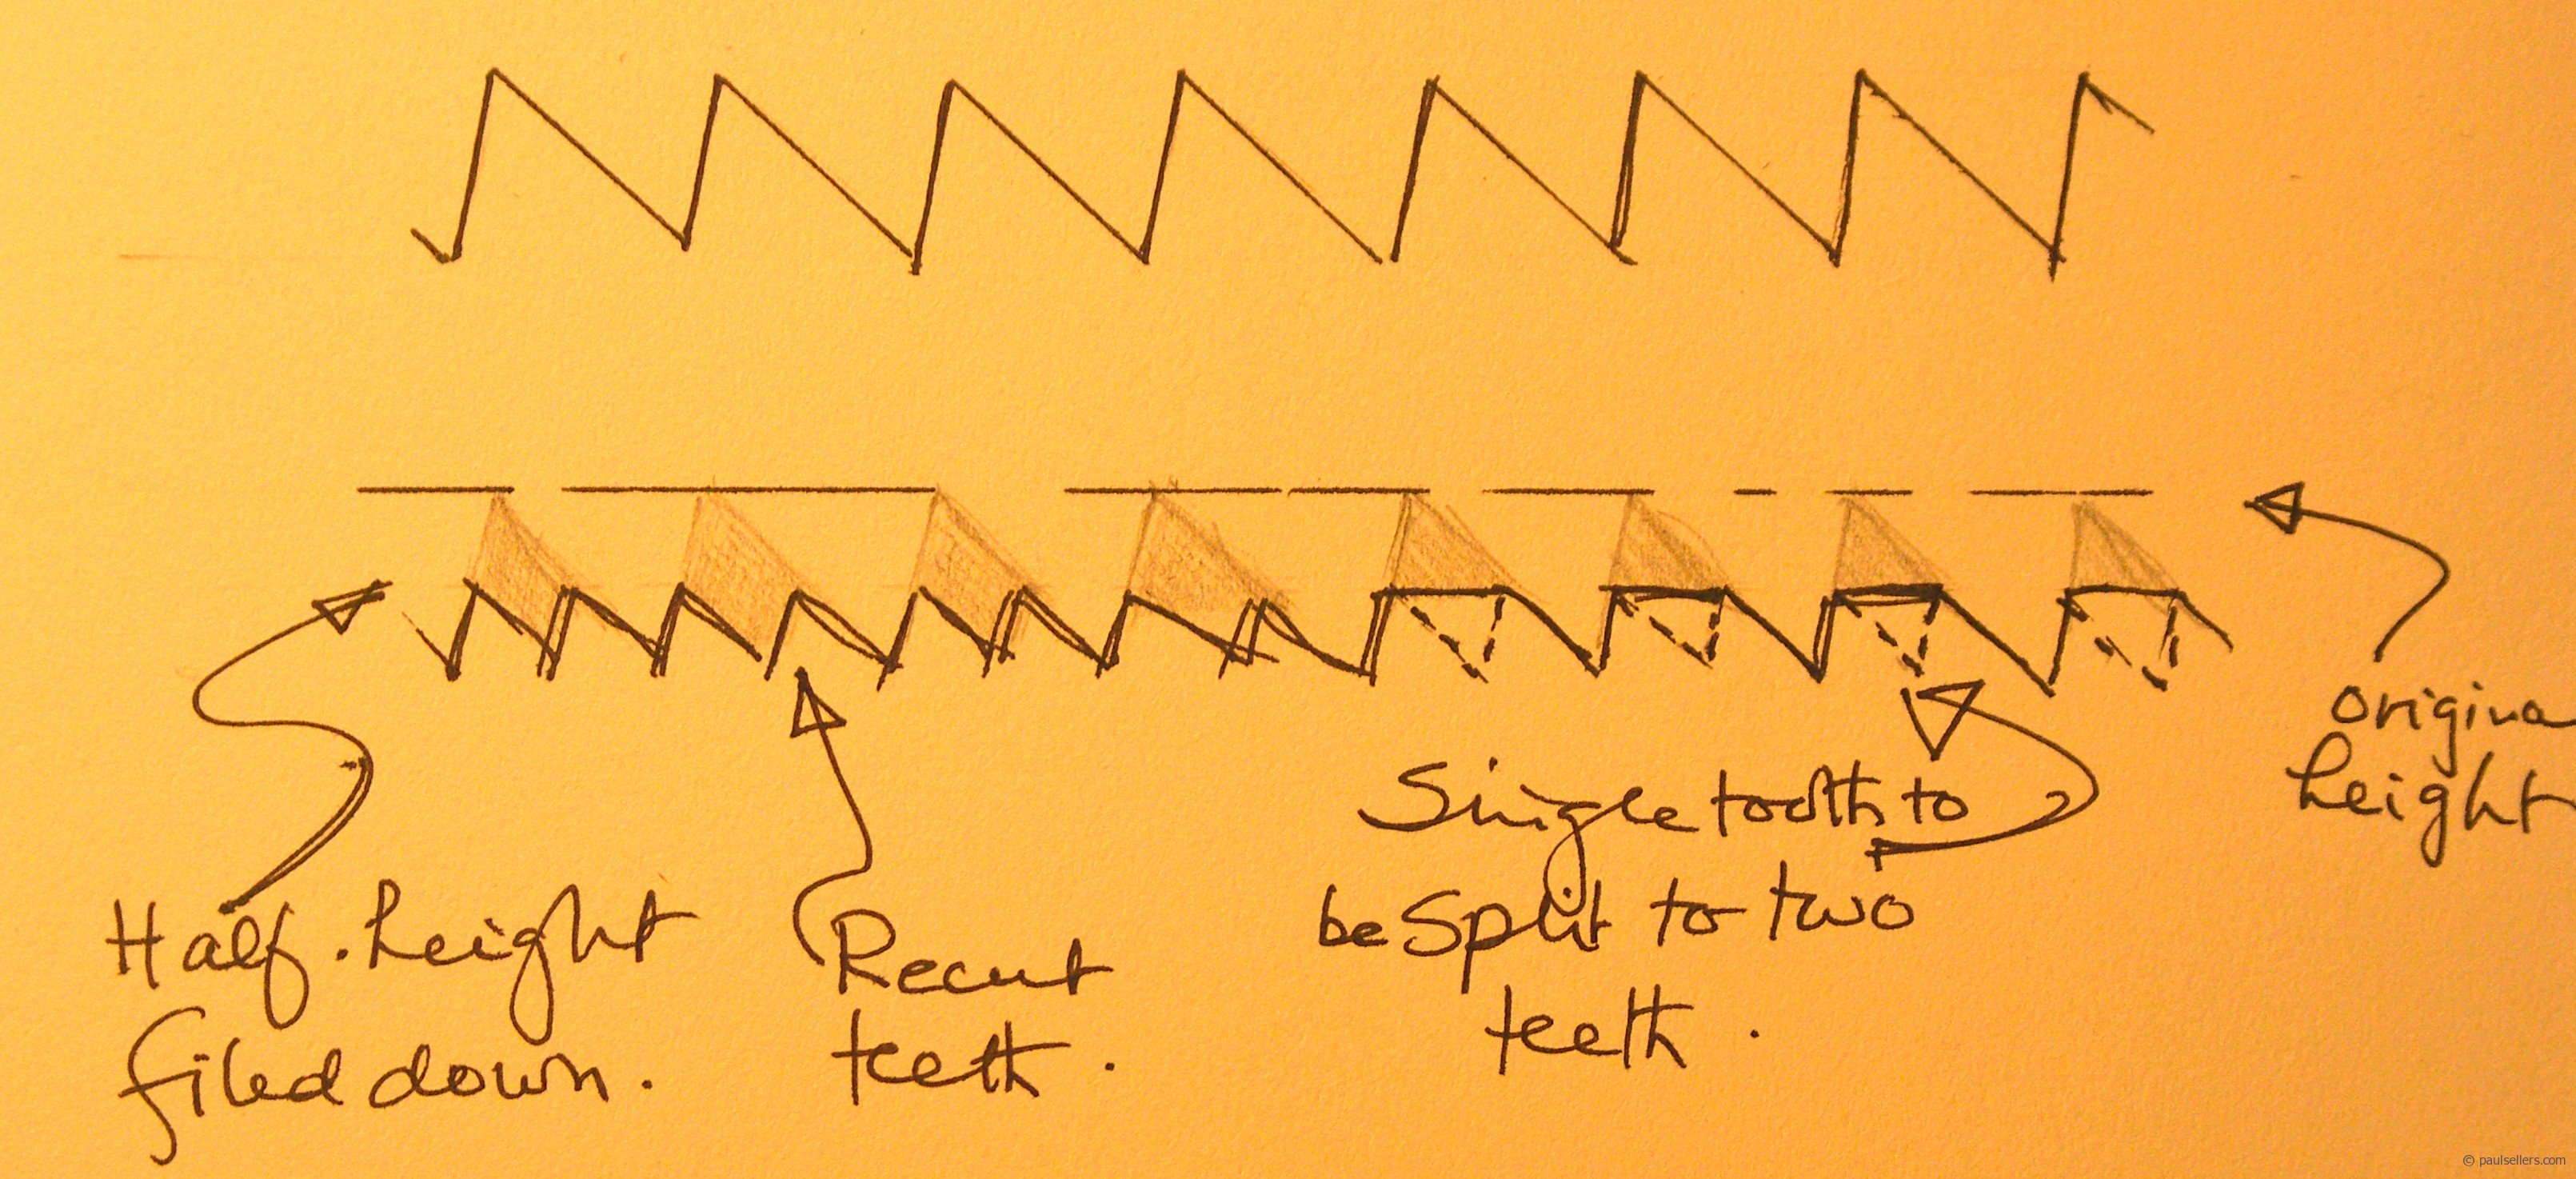 origina
height
Single tooth to
be Split to two
teeth.
Half-height
filed down.
Recut
teeth.
© paulsellers.com